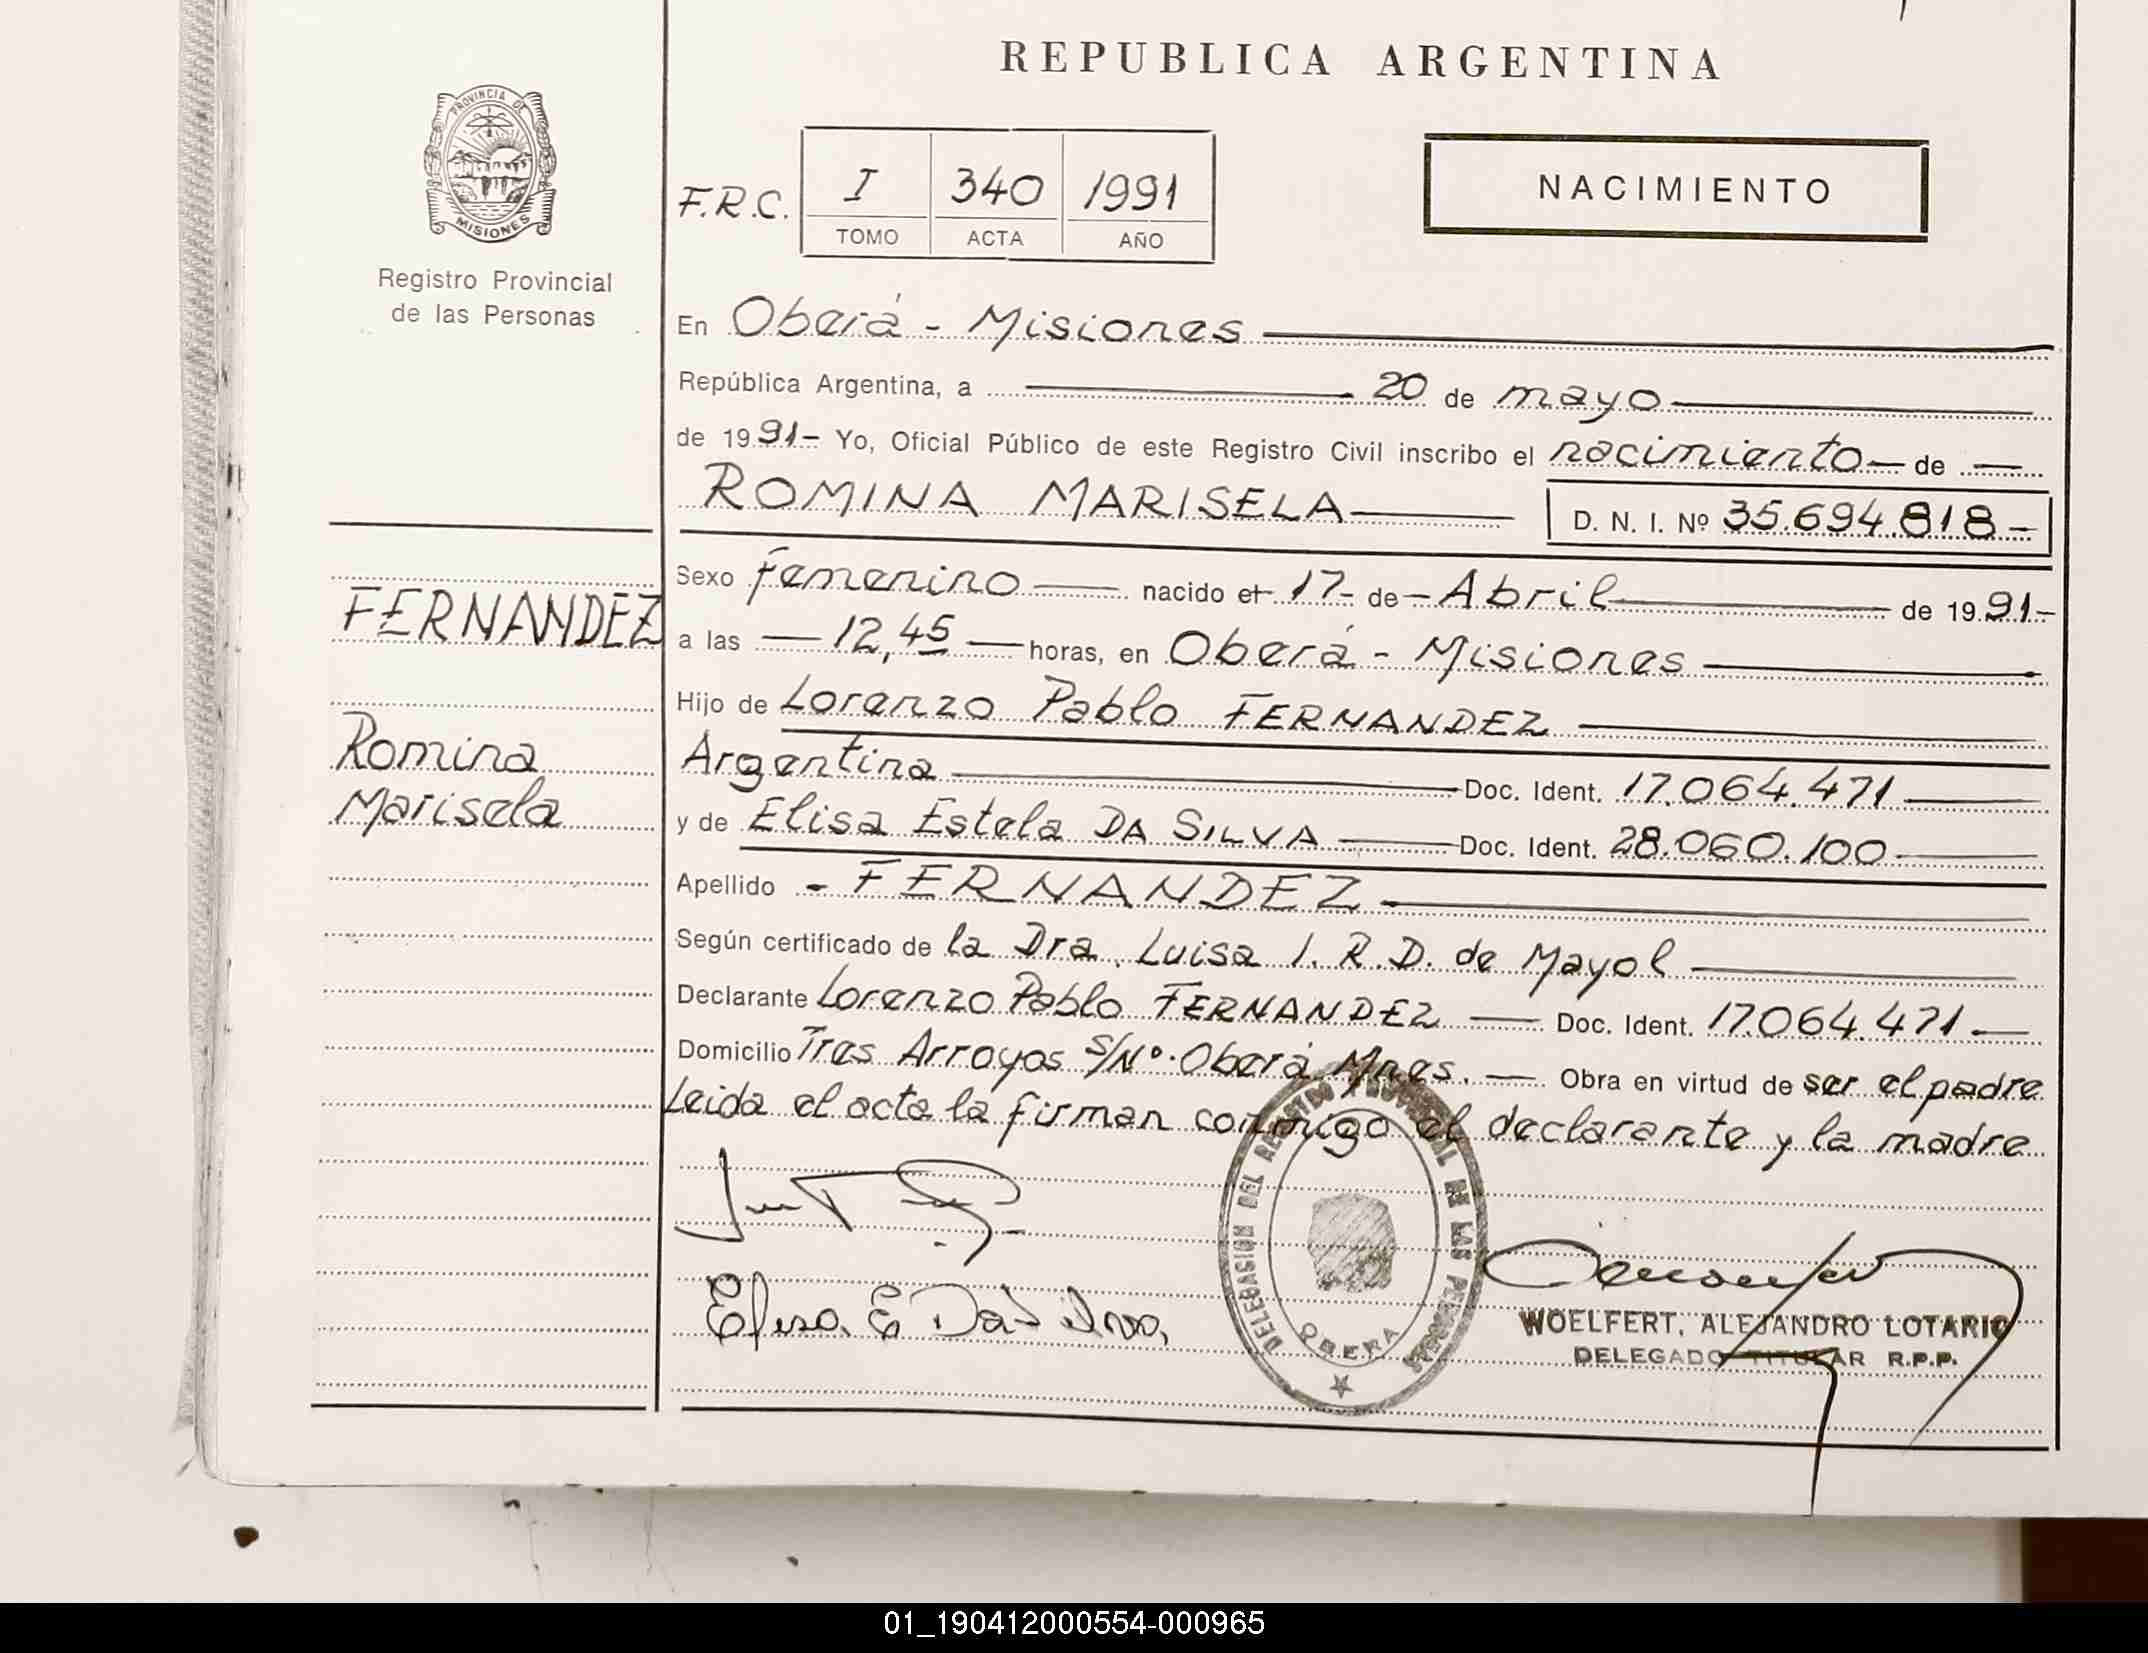 REPUBLICA ARGENTINA
PROVINCIA DE
MISIONES
Registro Provincial
de las Personas
F.R.C. I 340 1991
TOMO ACTA AÑO
NACIMIENTO
En Oberá - Misiones
República Argentina, a 20 de mayo
de 1991- Yo, Oficial Público de este Registro Civil inscribo el nacimiento - de -
ROMINA MARISELA D. N. I. Nº 35.694.818-
Sexo Femenino nacido el 17- de - Abril de 1991-
a las 12,45 horas, en Oberá - Misiones
Hijo de Lorenzo Pablo FERNANDEZ
Argentina Doc. Ident. 17.064.471
y de Elisa Estela DA SILVA Doc. Ident. 28.060.100
Apellido - FERNANDEZ
Según certificado de la Dra. Luisa I. R. D. de Mayol
Declarante Lorenzo Pablo FERNANDEZ Doc. Ident. 17.064.471
Domicilio Tres Arroyos s/Nº. Oberá Mnes. Obra en virtud de ser el padre
Leida el acta la firman conmigo el declarante y la madre
FERNANDEZ
Romina
Marisela
Elisa E Da Silva
DELEGACION DEL REGISTRO PROVINCIAL DE LAS PERSONAS
OBERA
WOELFERT, ALEJANDRO LOTARIO
DELEGADO TITULAR R.P.P.
01_190412000554-000965